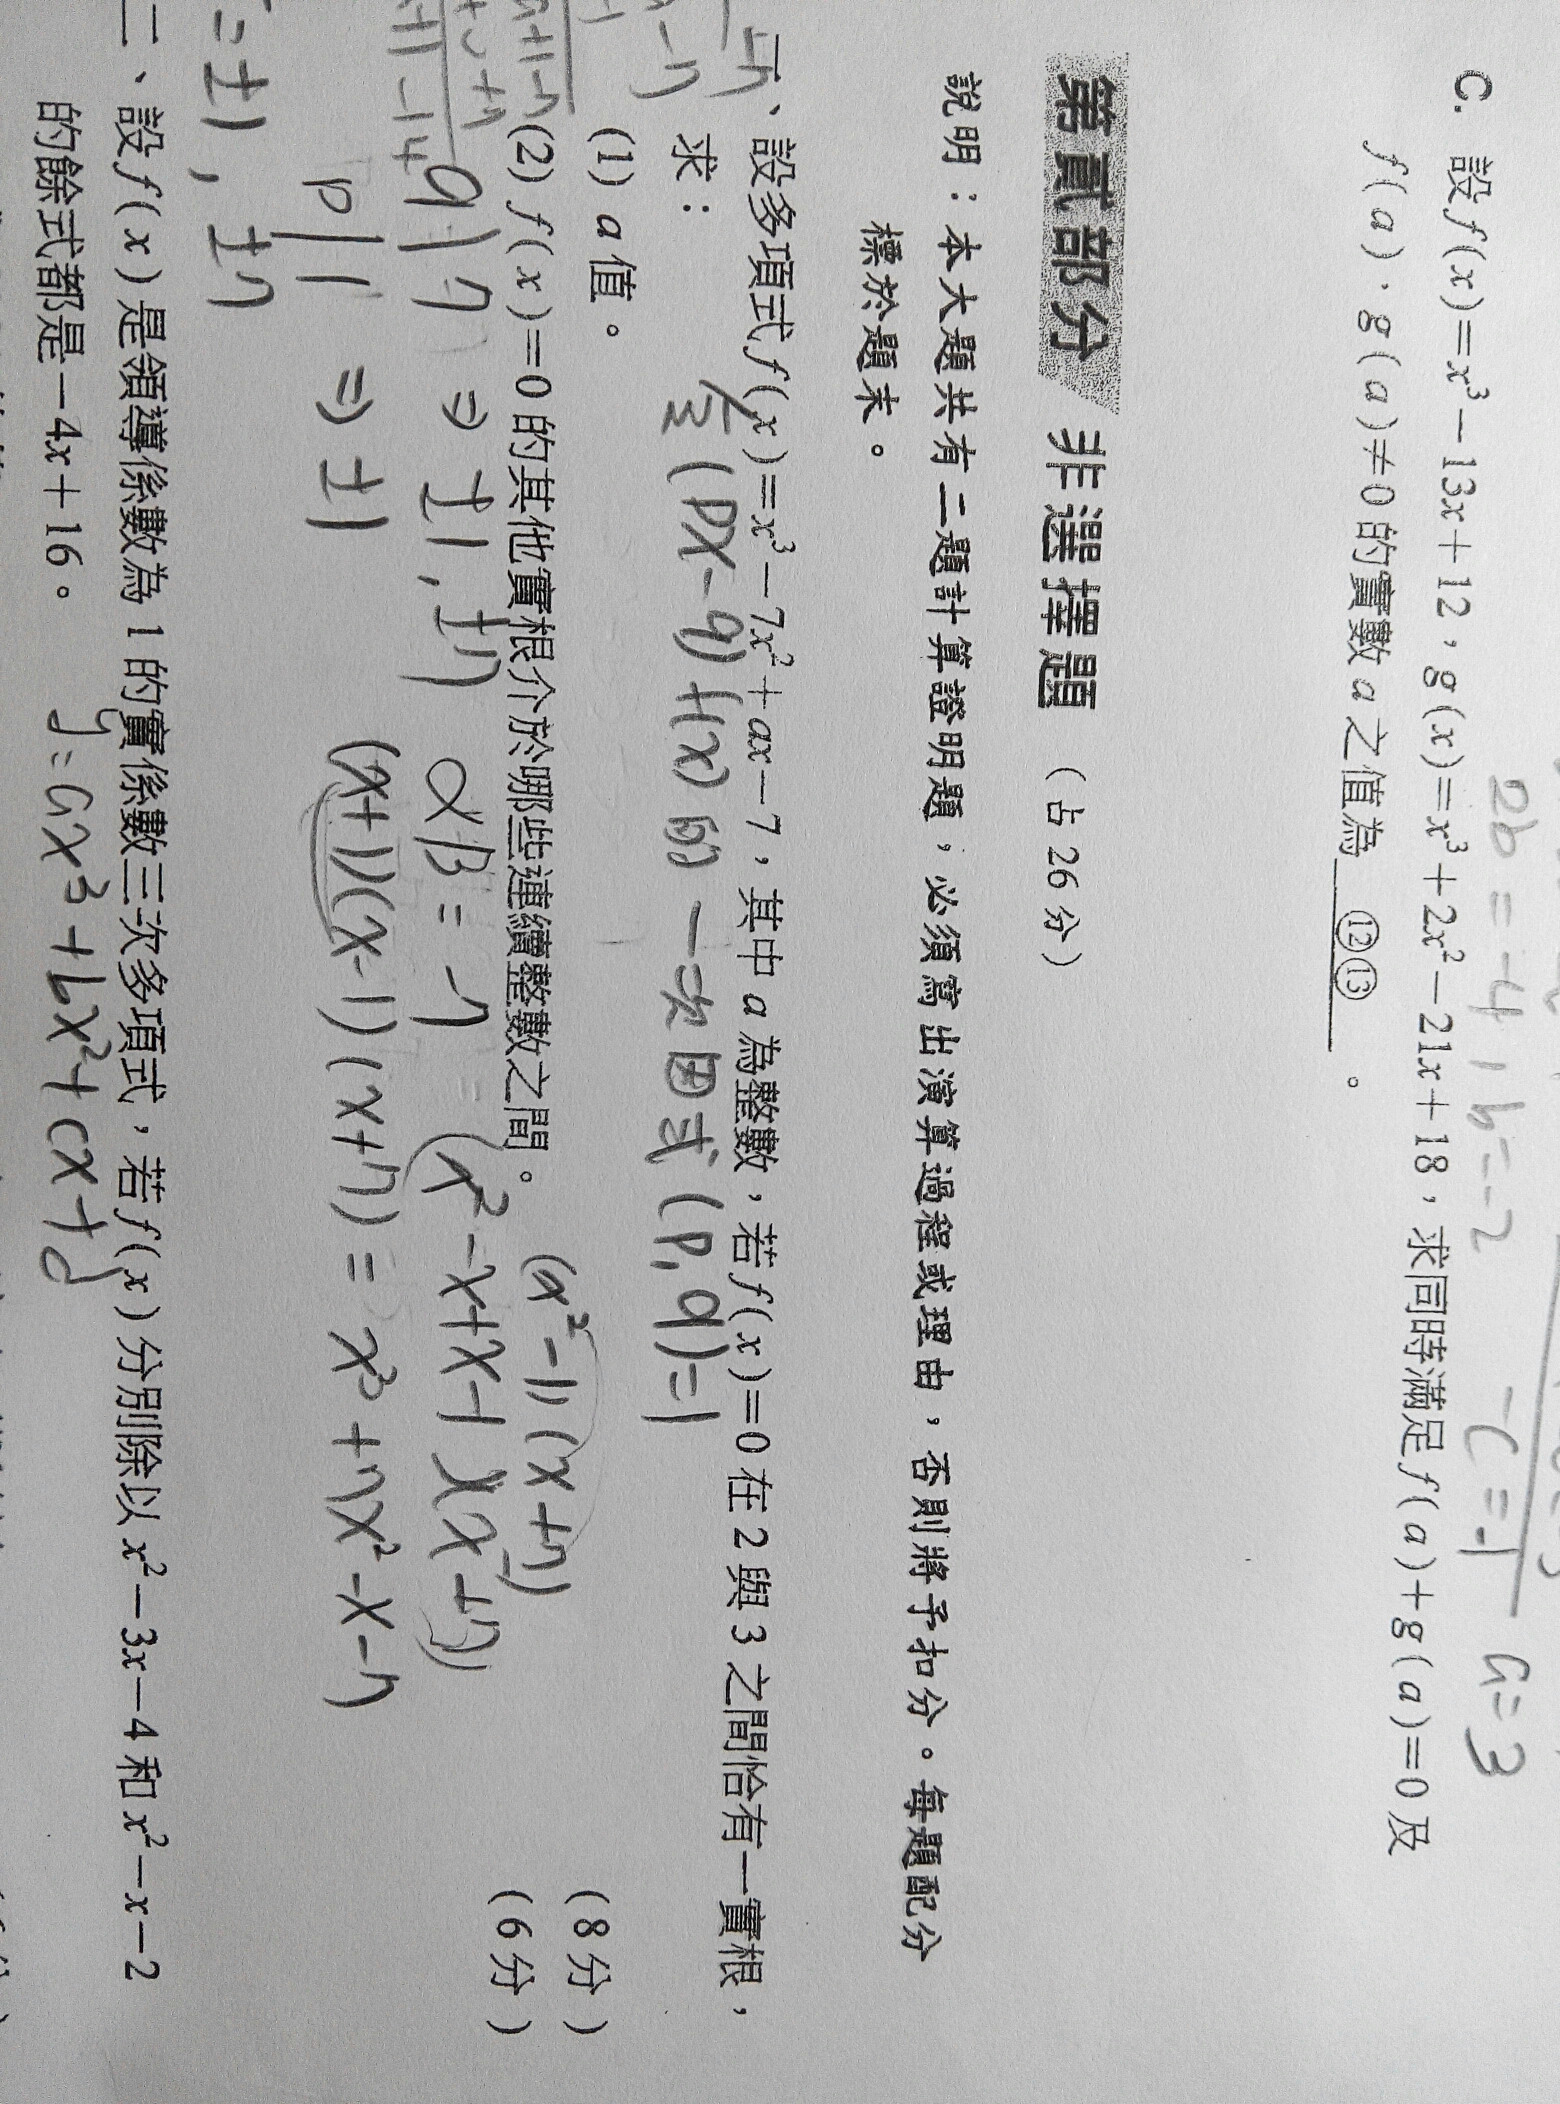 2b=-4, b=-2
-c=-1
a=3
C. 設f(x)=x³-13x+12，g(x)=x³+2x²-21x+18，求同時滿足f(a)+g(a)=0及
f(a)·g(a)≠0的實數a之值為 ⑫⑬ 。
第貳部分 非選擇題（占26分）
說明：本大題共有二題計算證明題，必須寫出演算過程或理由，否則將予扣分。每題配分
標於題末。
一、設多項式f(x)=x³-7x²+ax-7，其中a為整數，若f(x)=0在2與3之間恰有一實根，
求：
(px-q) f(x) 的一次因式 (p,q)=1
(1) a值。 （8分）
(2) f(x)=0的其他實根介於哪些連續整數之間。 （6分）
(x²-1)(x+7)
q|7 ⇒ ±1, ±7
αβ=-7
(x²-x+x-1)(x+7)
p|1 ⇒ ±1
(x+1)(x-1)(x+7)=x³+7x²-x-7
=±1, ±7
二、設f(x)是領導係數為1的實係數三次多項式，若f(x)分別除以x²-3x-4和x²-x-2
的餘式都是-4x+16。
y=ax³+bx²+cx+d